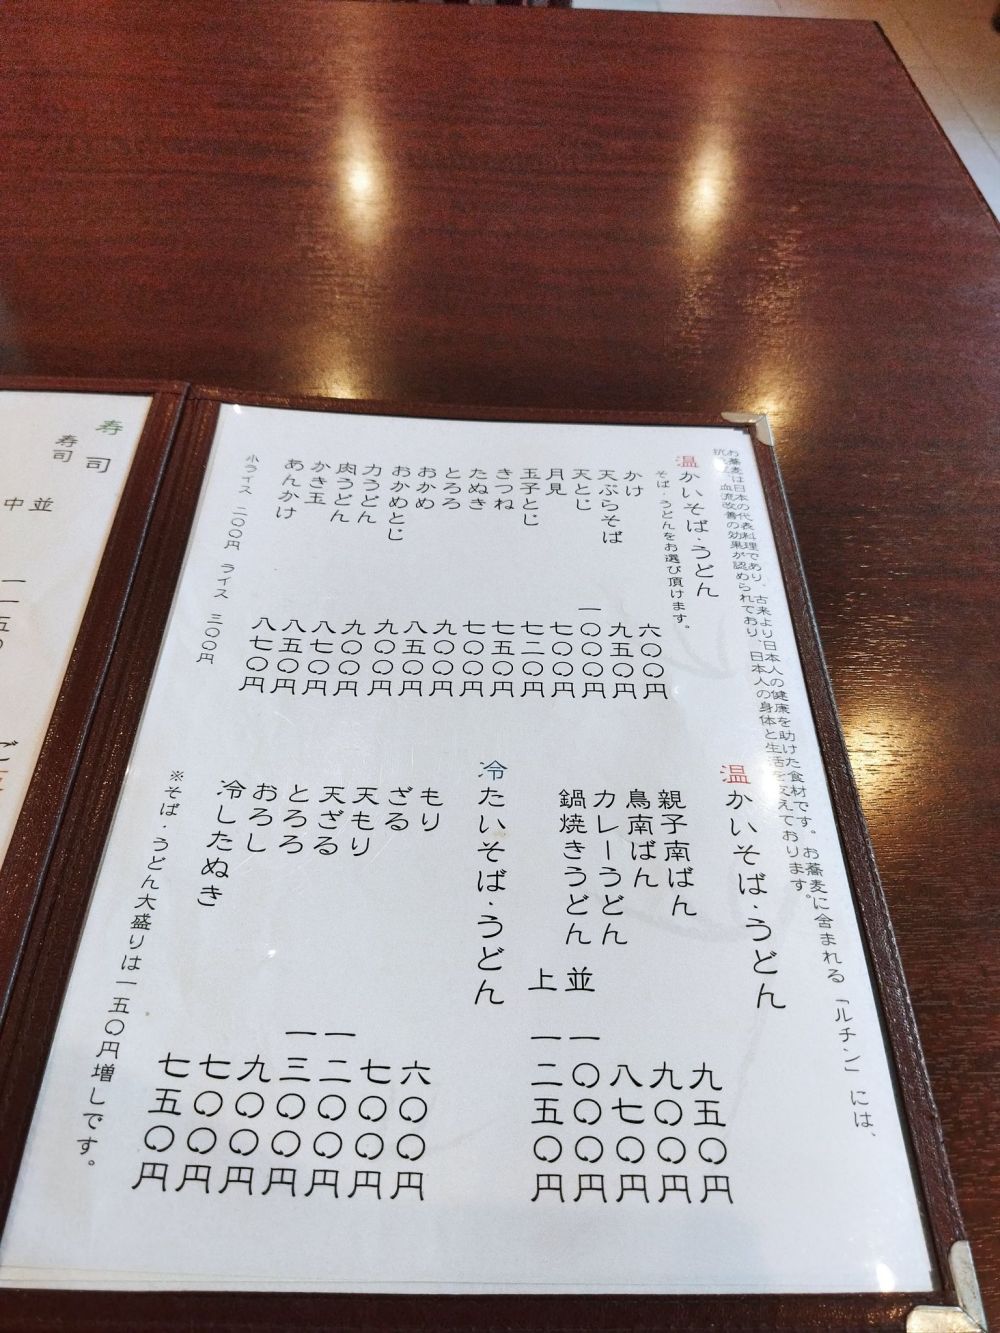 お蕎麦は日本の代表料理であり、古来より日本人の健康を助けた食材です。お蕎麦に含まれる「ルチン」には、
血流改善の効果が認められており、日本人の身体と生活を支えております。
温かいそば・うどん
そば・うどんをお選び頂けます。
かけ 六〇〇円
天ぷらそば 九五〇円
天とじ 一〇〇〇円
月見 七〇〇円
玉子とじ 七二〇円
きつね 七五〇円
たぬき 七〇〇円
とろろ 九〇〇円
おかめ 八五〇円
おかめとじ 九〇〇円
力うどん 九〇〇円
肉うどん 八七〇円
かき玉 八五〇円
あんかけ 八七〇円
小ライス 二〇〇円 ライス 三〇〇円
温かいそば・うどん
親子南ばん 九五〇円
鳥南ばん 九〇〇円
カレーうどん 八七〇円
鍋焼きうどん 並 一〇〇〇円
上 一二五〇円
冷たいそば・うどん
もり 六〇〇円
ざる 七〇〇円
天もり 一二〇〇円
天ざる 一三〇〇円
とろろ 九〇〇円
おろし 七〇〇円
冷したぬき 七五〇円
※そば・うどん大盛りは一五〇円増しです。
寿司
寿司 並
中